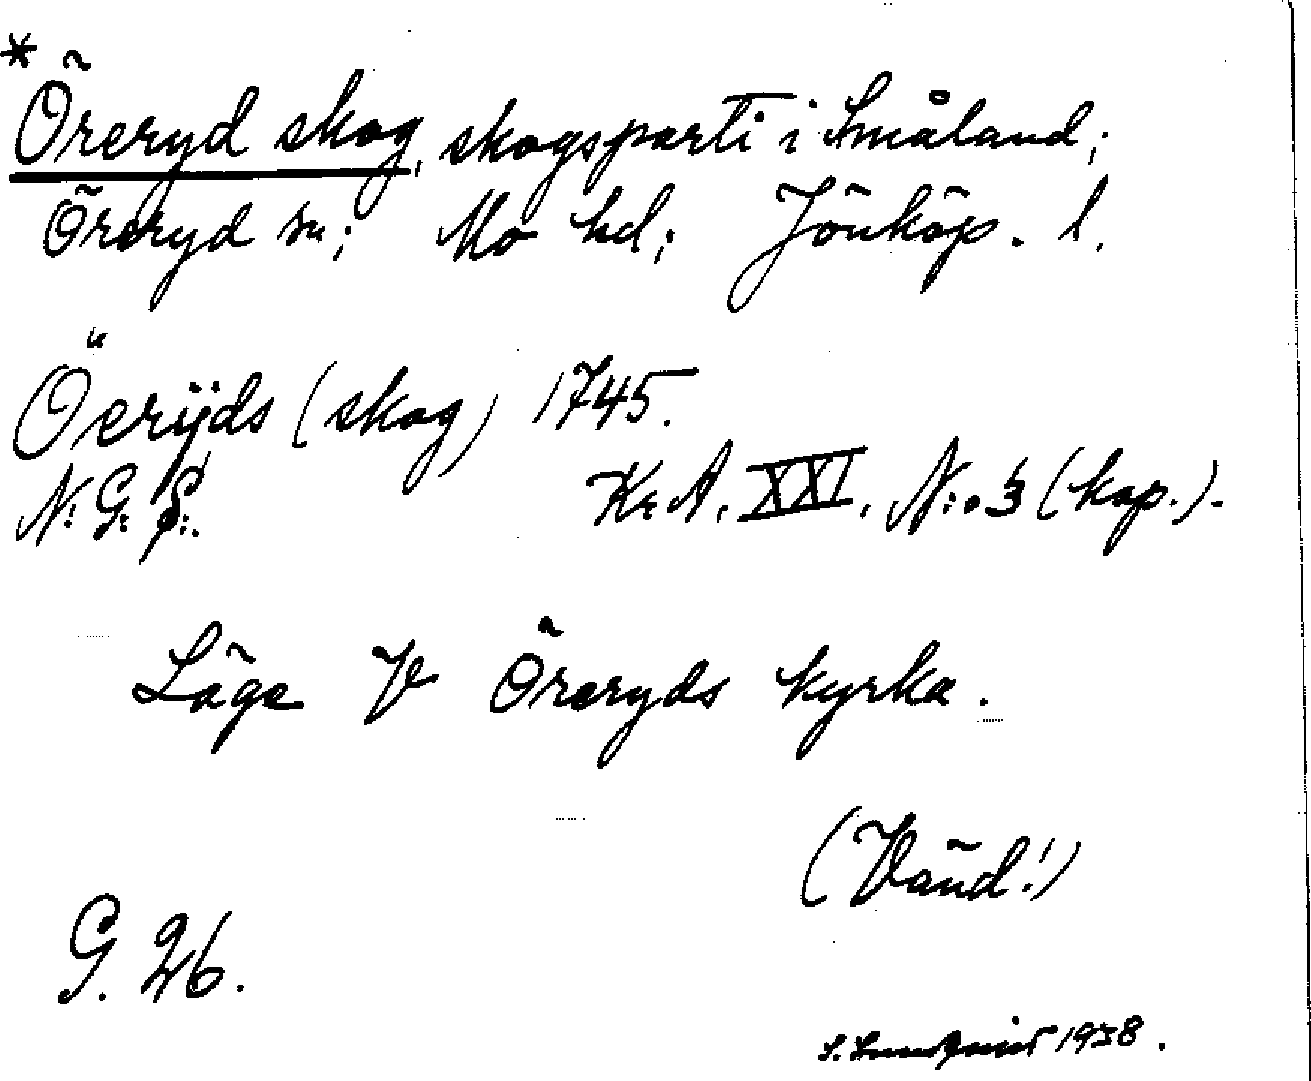 *
Öreryd skog, skogsparti i Småland;
Öreryd sn; Mo hd; Jönköp. l.
Öerÿds (skog) 1745.
N: G: S:. Kr A. XXI. N:o 3 (kop.).
Läge V Öreryds kyrka.
(Vänd!)
G. 26.
S. Lundqvist 1938.